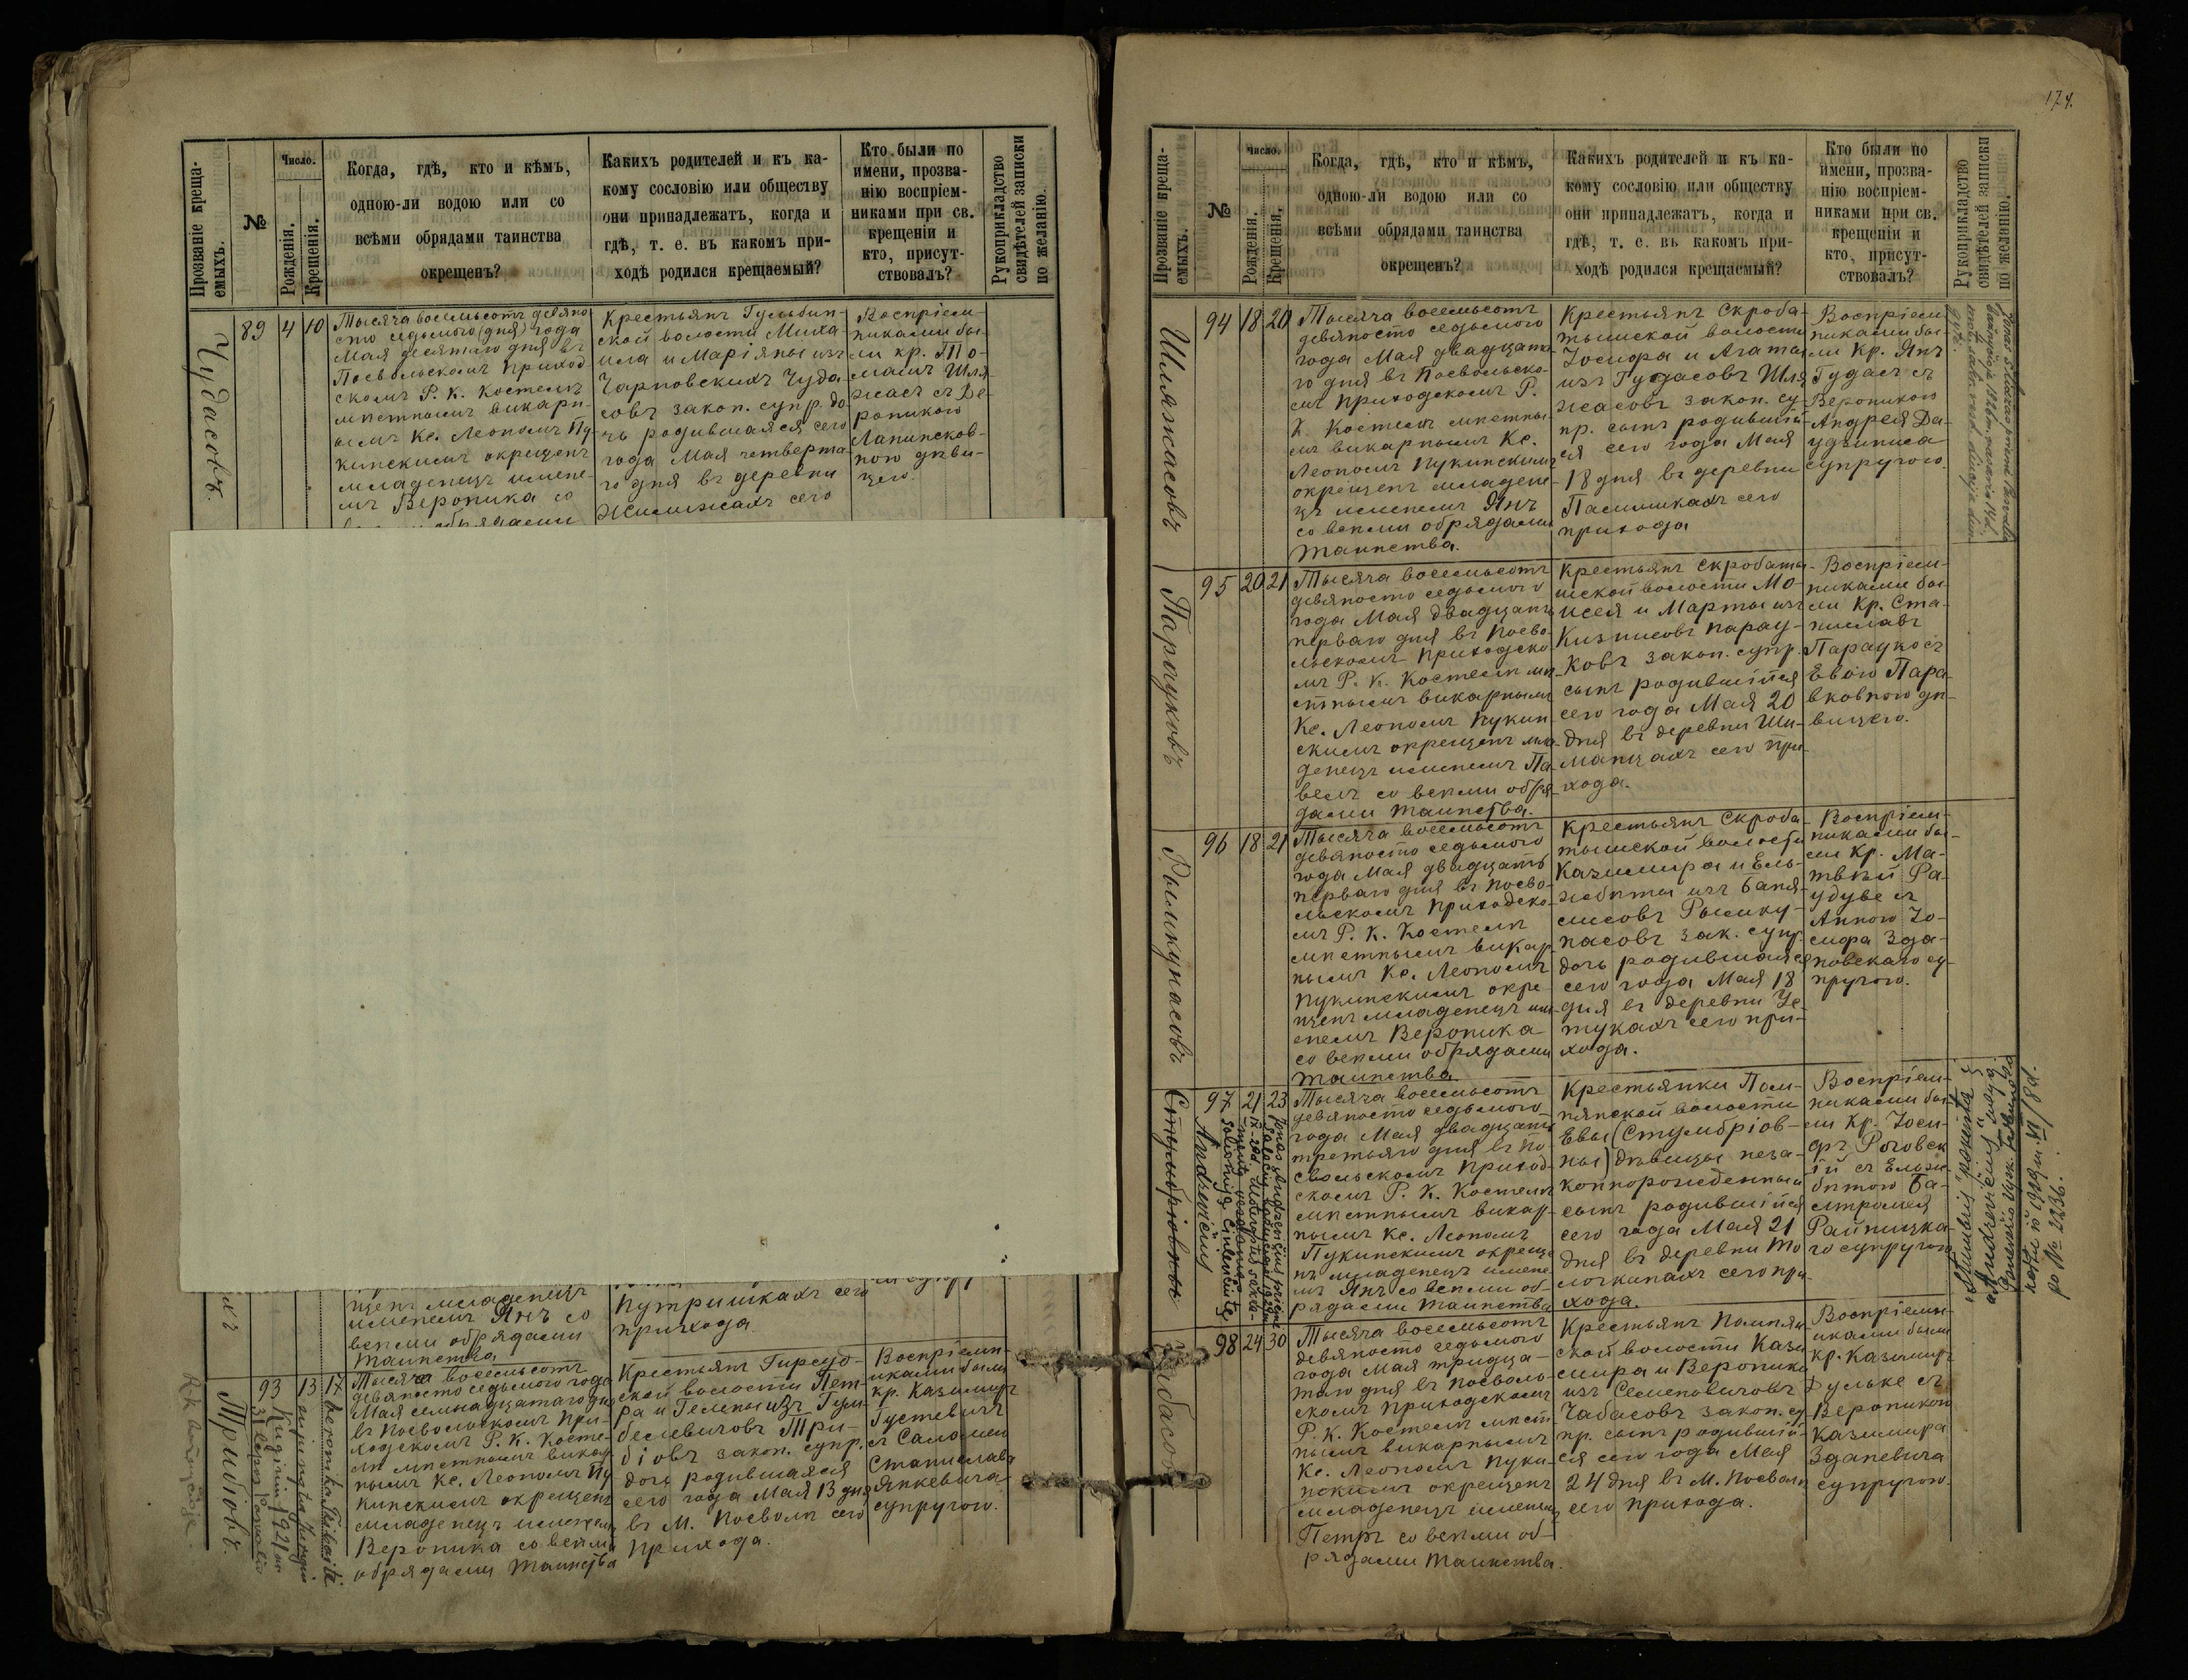 Прозваніе креща-
емыхъ.
№
Число.
Рожденія.
Крещенія.
Когда, гдѣ, кто и кѣмъ,
одною-ли водою или со
всѣми обрядами таинства
окрещенъ?
Какихъ родителей и къ ка-
кому сословію или обществу
они принадлежатъ, когда и
гдѣ, т. е. въ какомъ при-
ходѣ родился крещаемый?
Кто были по
имени, прозва-
нію воспріем-
никами при св.
крещеніи и
кто, присут-
ствовалъ?
Рукоприкладство
свидѣтелей записки
по желанію.
Чудасовъ.
89 4 10
Тысяча восемьсотъ девяно
сто седьмого (дня) года
Мая десятаго дня въ
Посвольскомъ Приход
скомъ Р. К. Костелѣ
мѣстнымъ викарн-
ымъ Кс. Леономъ Пу-
кинскимъ окрещенъ
младенецъ имене-
мъ Вероника со
обрядами
Крестьянъ Гульбин-
ской волости Миха-
ила и Маріяны изъ
Чарновскихъ Чуда-
совъ закон. супр. до-
чь родившаяся сего
года Мая четверта-
го дня въ деревни
сего
Воспріем-
никами бы-
ли кр. То-
машъ Шля-
жасъ съ Ве-
роникою
Лапинсков-
ною дѣви-
цею.
щенъ младенецъ
именемъ Янъ со
всѣми обрядами
таинства
Путришкахъ сего
прихода
Трибіовъ.
93 13 17
Тысяча восемьсотъ
девяносто седьмого года
Мая семнадцатаго дня
въ Посвольскомъ При-
ходскомъ Р. К. Косте-
лѣ мѣстнымъ викар
нымъ Кс. Леономъ Пу
кинскимъ окрещенъ
младенецъ именемъ
Вероника со всѣми
обрядами таинства
Крестьянъ Гирсудо-
ской волости Пет-
ра и Гелены изъ Гум-
белевичовъ Три-
біовъ закон. супр.
дочь родившаяся
сего года Мая 13 дня
въ М. Посволѣ сего
прихода.
Воспріемн-
иками были
кр. Казимиръ
Густевичъ
съ Саломеи
Станислава
Янкевича
супругою.
174.
Прозваніе креща-
емыхъ.
№
Число.
Рожденія.
Крещенія.
Когда, гдѣ, кто и кѣмъ,
одною-ли водою или со
всѣми обрядами таинства
окрещенъ?
Какихъ родителей и къ ка-
кому сословію или обществу
они принадлежатъ, когда и
гдѣ, т. е. въ какомъ при-
ходѣ родился крещаемый?
Кто были по
имени, прозва-
нію воспріем-
никами при св.
крещеніи и
кто, присут-
ствовалъ?
Рукоприкладство
свидѣтелей записки
по желанію.
Шляжасовъ
94 18 20
Тысяча восемьсотъ
девяносто седьмого
года Мая двадцата-
го дня въ Посвольско-
мъ Приходскомъ Р.
К. Костелѣ мѣстны-
мъ викарнымъ Кс.
Леономъ Пукинскимъ
окрещенъ младене-
цъ именемъ Янъ
со всѣми обрядами
таинства.
Крестьянъ Скроба-
тышской волости
Іосифа и Агаты
изъ Гудасовъ Шля
жасовъ закон. су-
пр. сынъ родившій-
ся сего года Мая
18 дня въ деревни
Пасишкахъ сего
прихода
Воспріем-
никами бы-
ли Кр. Янъ
Гудасъ съ
Вероникою
Андрея Да-
удзиниса
супругою.
Паруковъ
95 20 21
Тысяча восемьсотъ
девяносто седьмого
года Мая двадцать
перваго дня въ Посво-
льскомъ Приходско-
мъ Р. К. Костелѣ мѣ-
стнымъ викарнымъ
Кс. Леономъ Пукин-
скимъ окрещенъ мла-
денецъ именемъ Па-
велъ со всѣми обря-
дами таинства.
Крестьянъ Скробаты-
шской волости Мо-
исея и Марты изъ
Кизнисовъ Парау-
ковъ закон. супр.
сынъ родившійся
сего года Мая 20
дня въ деревни Ши-
манцахъ сего при-
хода.
Воспріем-
никами бы-
ли Кр. Ста-
ниславъ
Параукосъ
Евою Пара
вковною дѣ-
вицею.
Рымкунасовъ
96 18 21
Тысяча восемьсотъ
девяносто седьмого
года Мая двадцать
перваго дня въ Посво-
льскомъ Приходско-
мъ Р. К. Костелѣ
мѣстнымъ викар-
нымъ Кс. Леономъ
Пукинскимъ окре-
щенъ младенецъ им-
енемъ Вероника
со всѣми обрядами
таинства
Крестьянъ Скроба-
тышской волости
Казимира и Ель-
жбѣты изъ Баня-
лисовъ Рымку-
насовъ зак. супр.
дочь родившаяся
сего года Мая 18
дня въ деревни Це-
тукахъ сего при-
хода.
Воспріем-
никами бы-
ли Кр. Ма-
твѣй Ра-
удуве съ
Анною Іо-
сифа Зда-
новскаго су-
пругою.
Стумбріовны
97 21 23
Andrevičius
Тысяча восемьсотъ
девяносто седьмого
года Мая двадцать
третьяго дня въ По
свольскомъ Приход-
скомъ Р. К. Костелѣ
мѣстнымъ викар-
нымъ Кс. Леономъ
Пукинскимъ окреще
нъ младенецъ имене
мъ Янъ со всѣми об-
рядами таинства
Крестьянки Пом-
пянской волости
Евы (Стумбріов-
ны) дѣвицы неза-
коннорожденный
сынъ родившійся
сего года Мая 21
дня въ деревни То
лочкинахъ сего при
хода.
Воспріем-
никами бы-
ли Кр. Іоси-
фъ Роговск
ій съ Ельж-
бѣтою Ба-
лтромея
Райницка-
го супругою
"Stumbris" pakeista į
"Andrevičius" naują
po № 2236.
Чабасовъ
98 24 30
Тысяча восемьсотъ
девяносто седьмого
года Мая тридца-
таго дня въ Посволь-
скомъ Приходскомъ
Р. К. Костелѣ мѣст-
нымъ викарнымъ
Кс. Леономъ Пуки-
нскимъ окрещенъ
младенецъ именемъ
Петръ со всѣми об-
рядами таинства.
Крестьянъ Помпян
ской волости Кази
мира и Вероники
изъ Семеновичовъ
Чабасовъ закон. су-
пр. сынъ родившій-
ся сего года Мая
24 дня въ М. Посволѣ
сего прихода.
Воспріемн-
иками были
кр. Казимиръ
Гульке съ
Вероникою
Казимира
Зданевича
супругою.